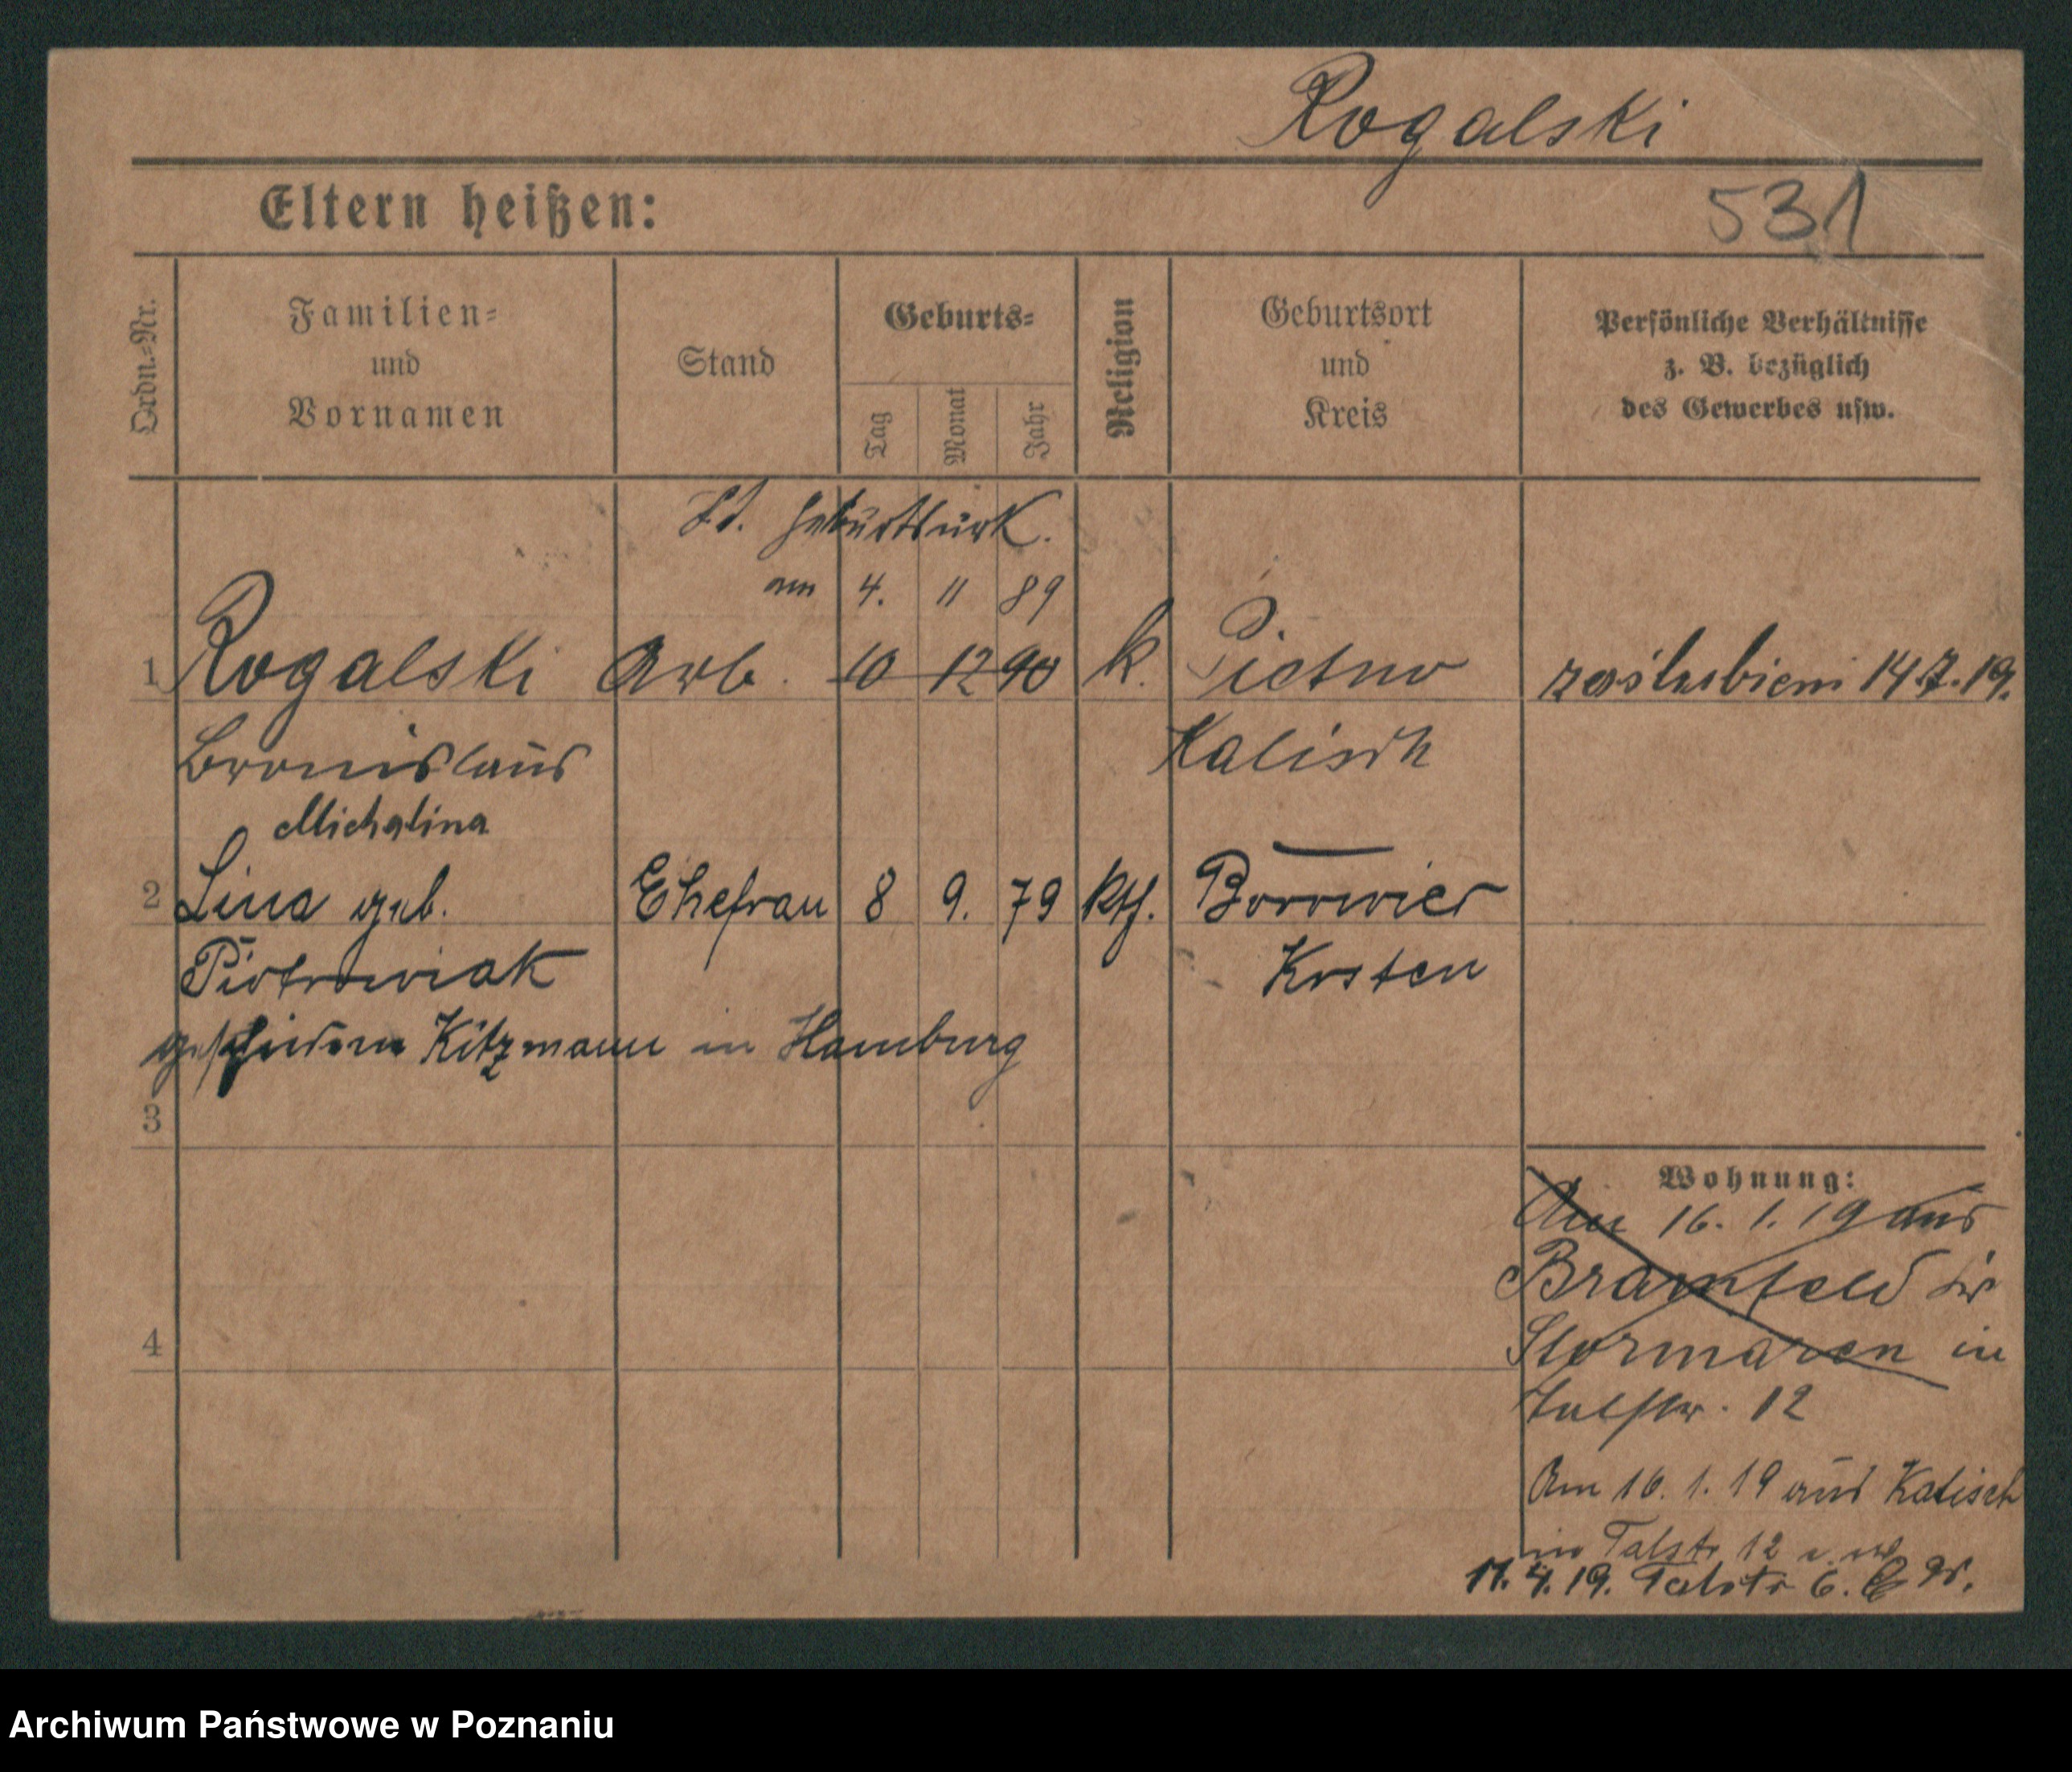 Rogalski
Eltern heißen:
531
Ordn.-Nr.
Familien-
und
Vornamen
Stand
Geburts-
Tag
Monat
Jahr
Religion
Geburtsort
und
Kreis
Persönliche Verhältnisse
z. B. bezüglich
des Gewerbes usw.
Lt. Geburtsurk.
am 4. 11 89
1 Rogalski Arb. 10 12 90 k. Pietno zaślubieni 14.7.19.
Bronislaus Kalisch
Michalina
2 Lina geb. Ehefrau 8 9. 79 kth. Borowier
Piotrowiak Kosten
geschiedene Kitzmann in Hamburg
3
Wohnung:
Am 16. 1. 19 aus
Bramfeld kr
Stormaren in
4
Talstr. 12
Am 16. 1. 19 aus Kalisch
in Talstr 12
17. 4. 19. Talstr 6.
Archiwum Państwowe w Poznaniu